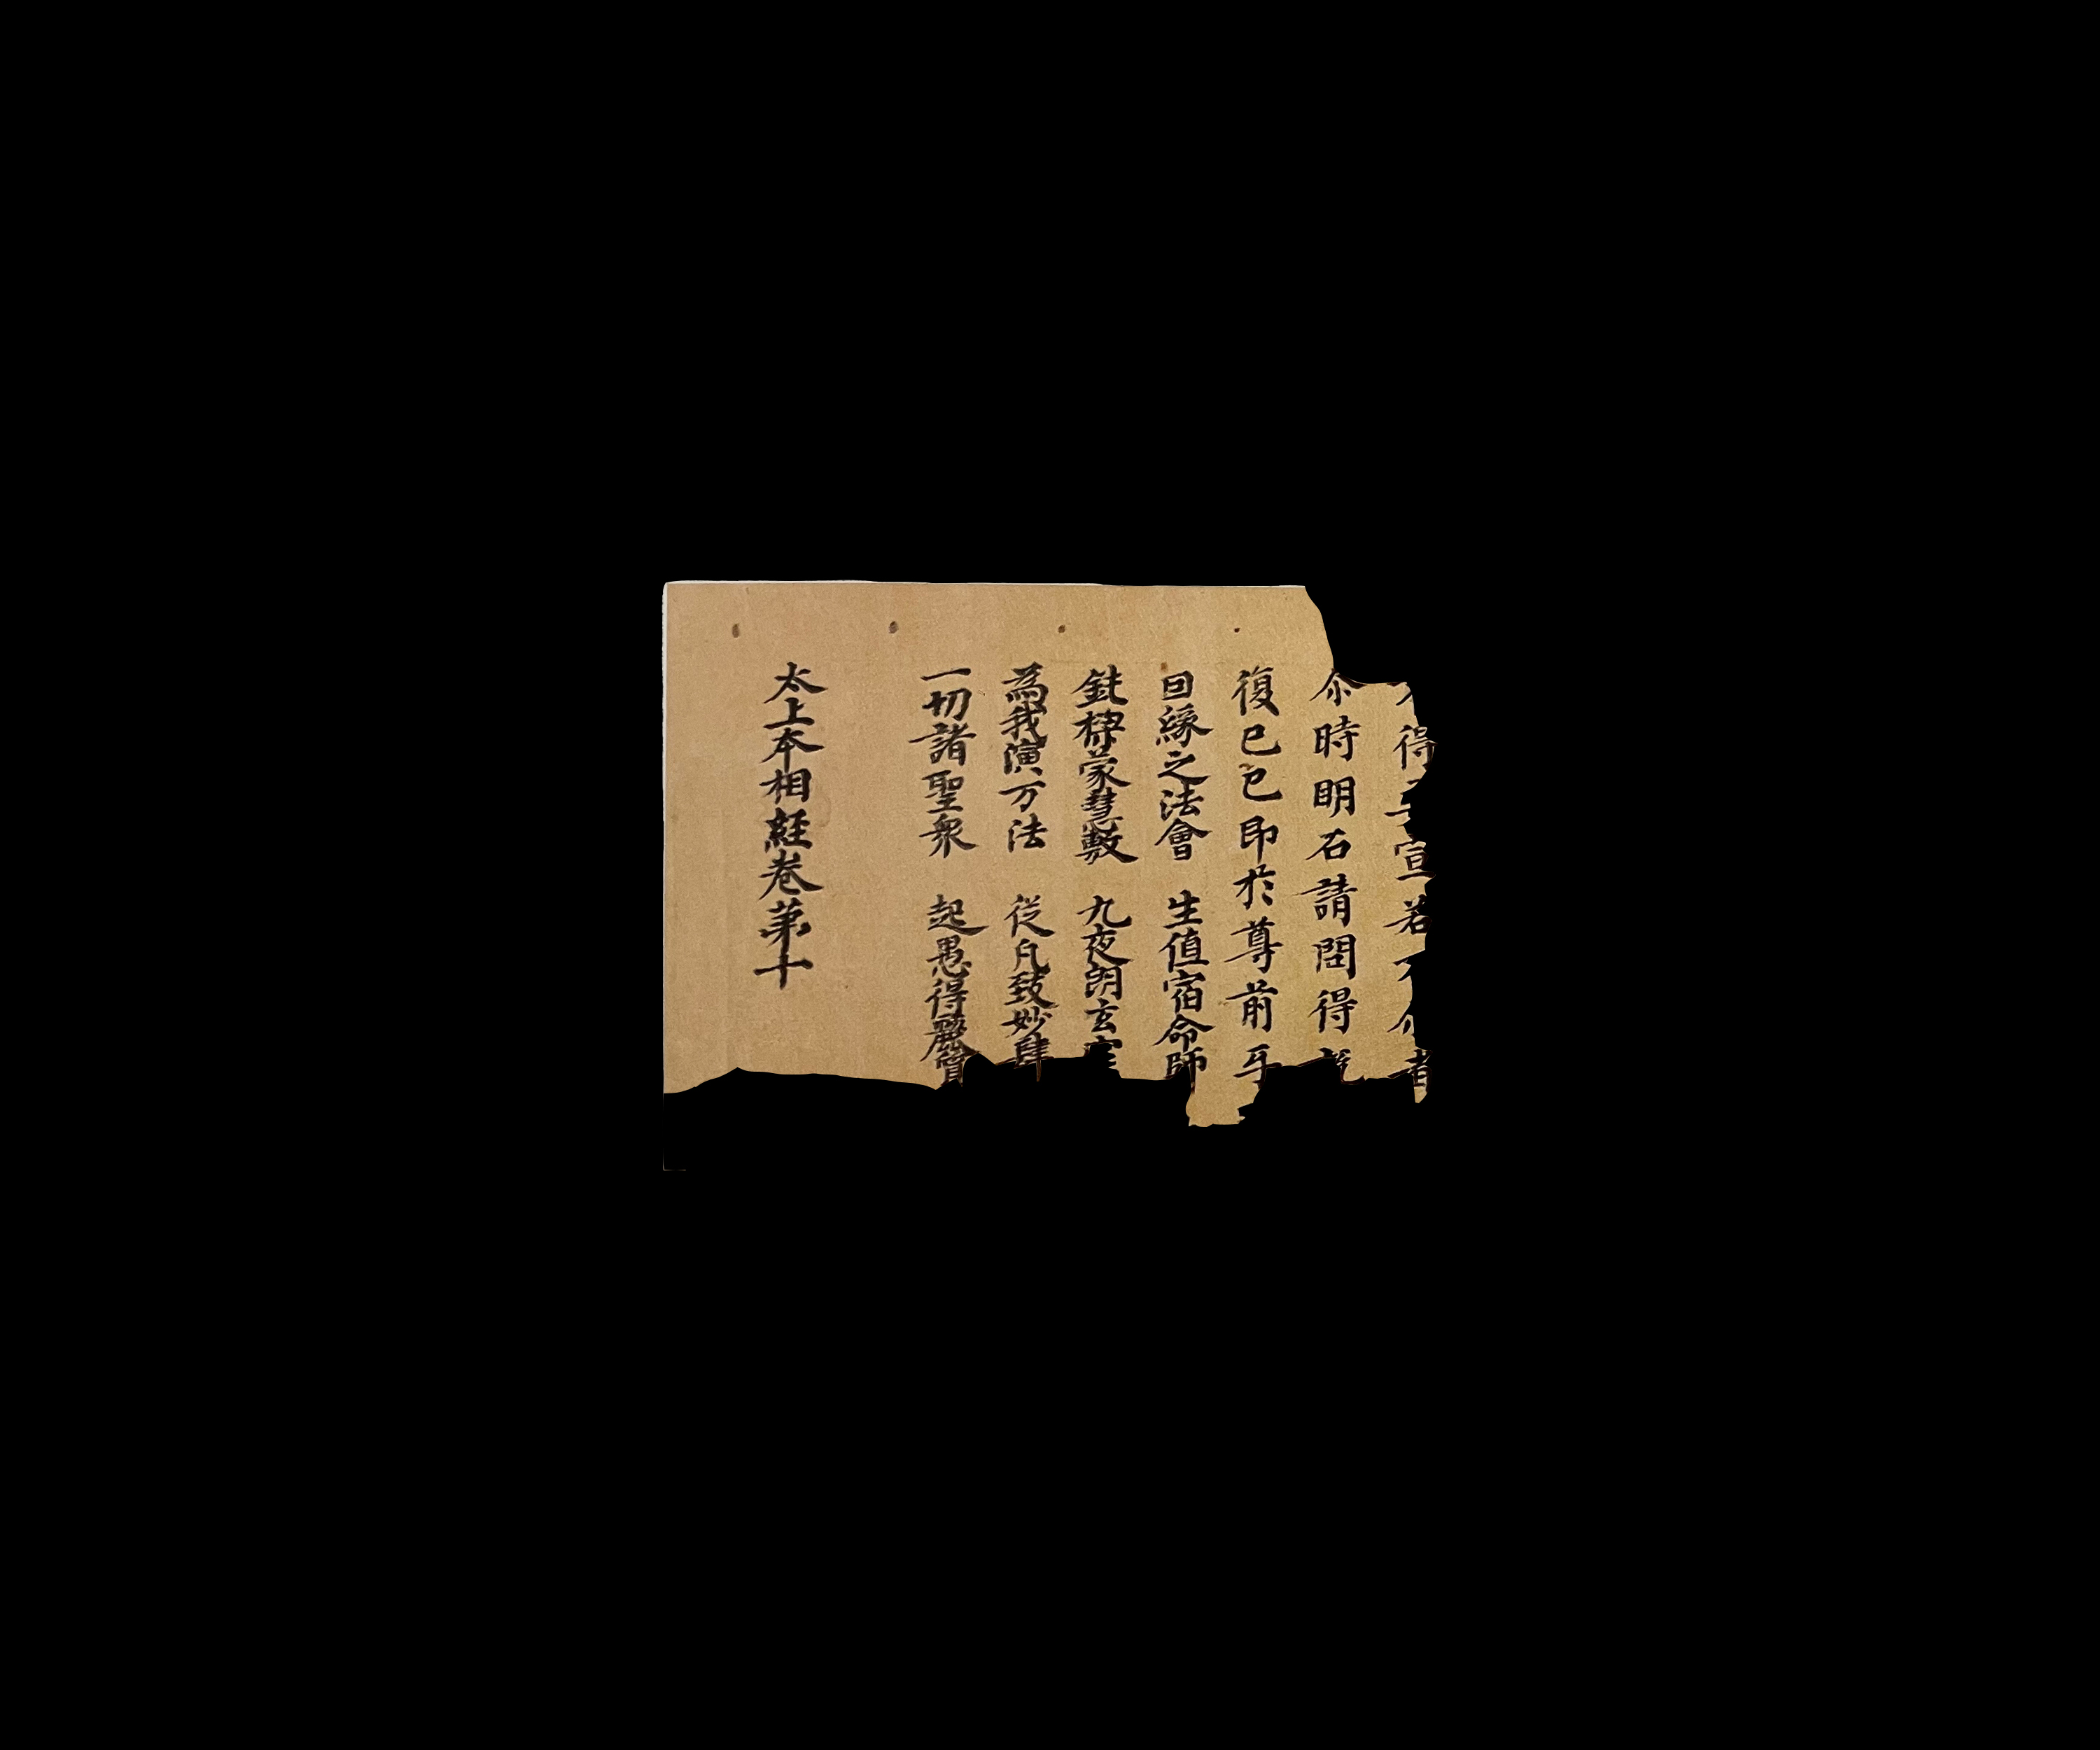 得 宣若
尒時明石請問得
復已已即於尊前
回緣之法會 生值宿命師
蒙慧數 九夜朗玄
為我演万法 從凡致妙
一切諸聖衆 起愚得麗質
太上夲相經卷苐十